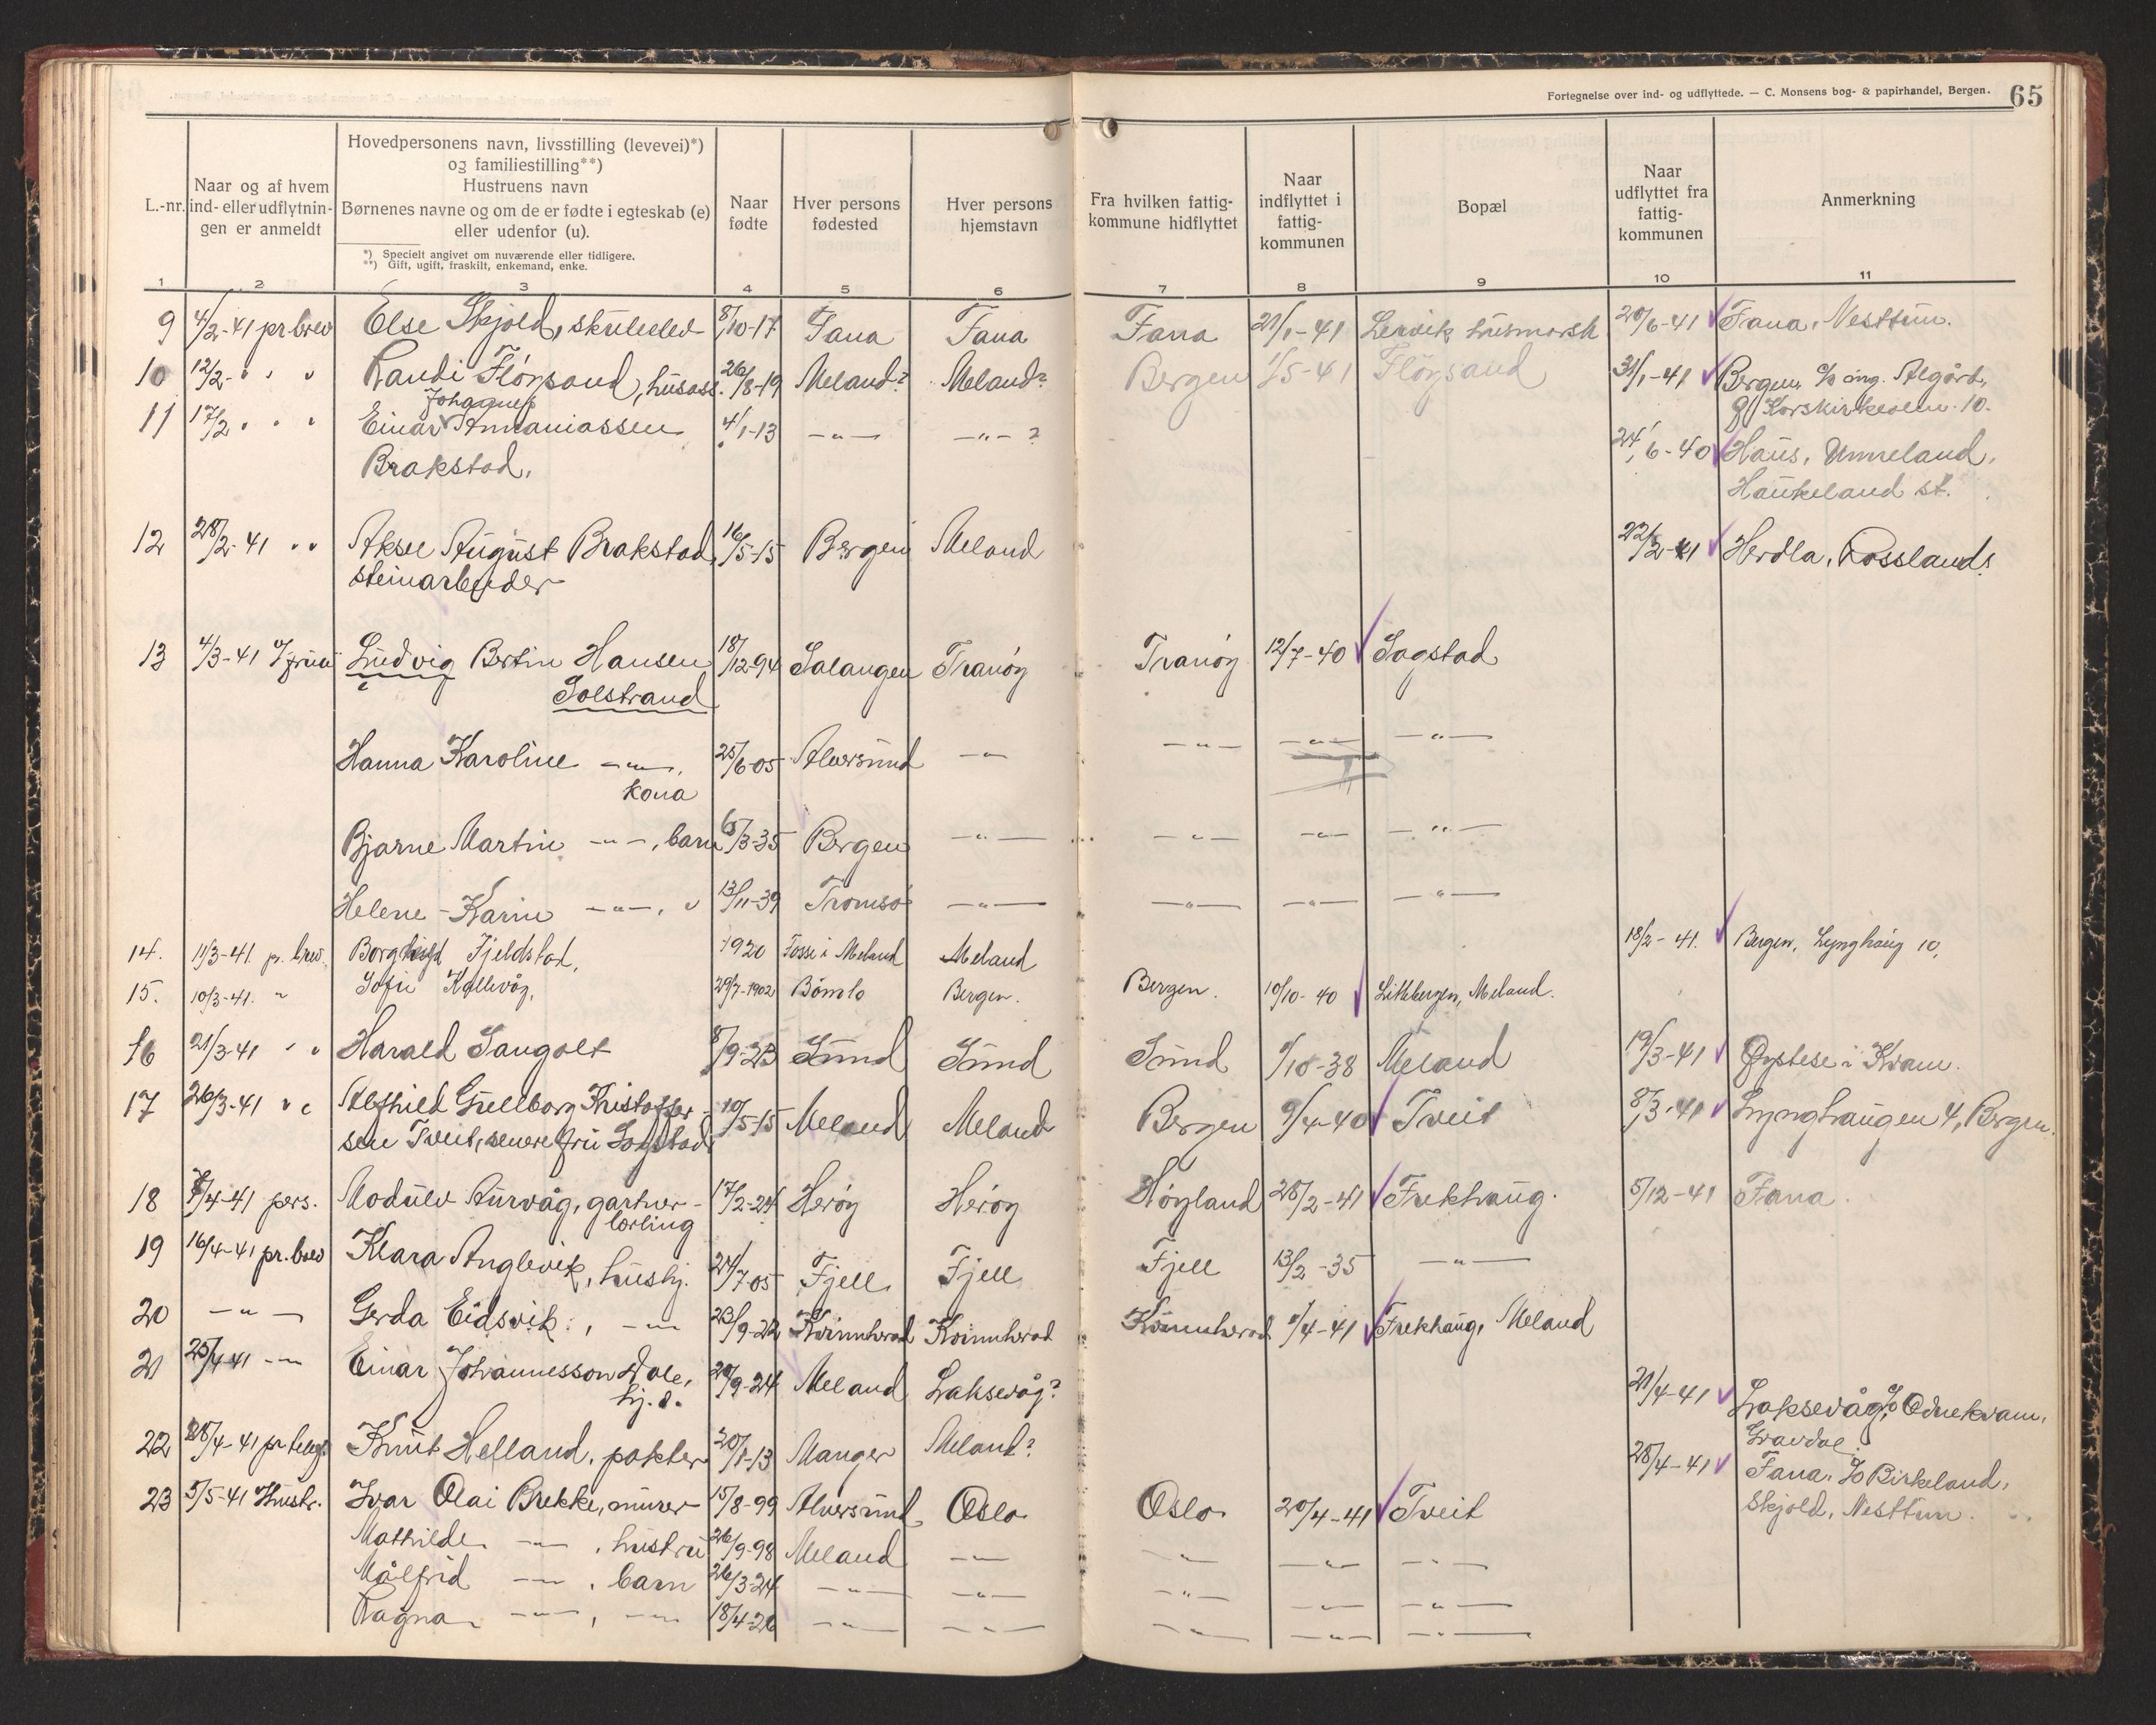 Fortegnelse over ind- og udflyttede. — C. Monsens bog- & papirhandel, Bergen. 65
L.-nr.
Naar og af hvem
ind- eller udflytnin-
gen er anmeldt
Hovedpersonens navn, livsstilling (levevei)*)
og familiestilling**)
Hustruens navn
Børnenes navne og om de er fødte i egteskab (e)
eller udenfor (u).
*) Specielt angivet om nuværende eller tidligere.
**) Gift, ugift, fraskilt, enkemand, enke.
Naar
fødte
Hver persons
fødested
Hver persons
hjemstavn
Fra hvilken fattig-
kommune hidflyttet
Naar
indflyttet i
fattig-
kommunen
Bopæl
Naar
udflyttet fra
fattig-
kommunen
Anmerkning
1 2 3 4 5 6 7 8 9 10 11
9 4/2-41 pr brev Else Skjold, skuleelev 8/10-17 Fana Fana Fana 21/1-41 Lervik husmorsk 20/6-41 Fana, Nesttun.
10 12/2- " " " Randi Fløysand, husass. 26/8-19 Meland? Meland? Bergen 1/5-41 Fløysand 31/1-41 Bergen, c/o ing. Algård,
Korskirkealm. 10.
Johannes
11 17/2 " " " Einar Annaniassen 4/1-13 -"- -"- ? 24/6-40 Haus, Unneland,
Brakstad. Haukeland st.
12 28/2-41 " " Aksel August Brakstad, 16/5-15 Bergen Meland 22/2-41 Herdla, Rosslands
steinarbeider
13 4/3-41 v/ frua Ludvig Bertin Hansen 18/12-94 Salangen Tranøy Tranøy 12/7-40 Sagstad
Solstrand
Hanna Karoline -"-, 25/6-05 Alversund -"- -"- -"- -"-
kona
Bjarne Martin -"-, barn 6/3-35 Bergen -"- -"- -"- -"-
Helene-Karin -"-, " 13/11-39 Tromsø -"- -"- -"- -"-
14. 11/3-41. pr. brev. Borghild Fjeldstad, 1920 Fosse i Meland Meland 18/2-41. Bergen, Lynghaug 10,
15. 10/3-41. " Sofie Kallevåg, 29/7-1902 Bømlo Bergen. Bergen. 10/10-40 Littlebergen, Meland.
16 21/3-41 " " Harald Sangolt 8/9-23 Sund Sund Sund /10-38 Meland 19/3-41 Øystese i Kvam.
17 26/3-41 " " Alfhild Gullborg Kristoffer- 10/5-15 Meland Meland Bergen 9/4-40 Tveit 8/3-41 Lynghaugen 4, Bergen.
sen Tveit, senere fru Sagstad
18 7/4-41 pers. Modulv Aurvåg, gartner- 17/2-24 Herøy Herøy Høyland 28/2-41 Frekhaug. 5/12-41 Fana.
lærling
19 16/4-41 pr. brev Klara Anglevik, hushj. 24/7-05 Fjell Fjell Fjell 13/2-35 -"-
20 -"- Gerda Eidsvik, -"- 23/9-22 Kvinnherad Kvinnherad Kvinnherad /4-41 Frekhaug, Meland
21 25/4-41 -"- Einar Johannesson Dale, 20/9-24 Meland Laksevåg? 21/4-41 Laksevåg, c/o Odnekvam,
hj.s. Gravdal.
22 28/4-41 pr telegr. Knut Helland, pakter 20/1-13 Manger Meland? 28/4-41 Fana, c/o Birkeland,
Skjold, Nesttun.
23 5/5-41 Hustr. Ivar Olai Brekke, murer 15/8-99 Alversund Oslo Oslo 20/4-41 Tveit
Mathilde -"-, hustru 26/9-98 Meland -"- -"- -"- -"-
Målfrid -"-, barn 26/3-24 -"- -"- -"- -"- -"-
Ragna -"-, -"- 18/4-26 -"- -"- -"- -"- -"-